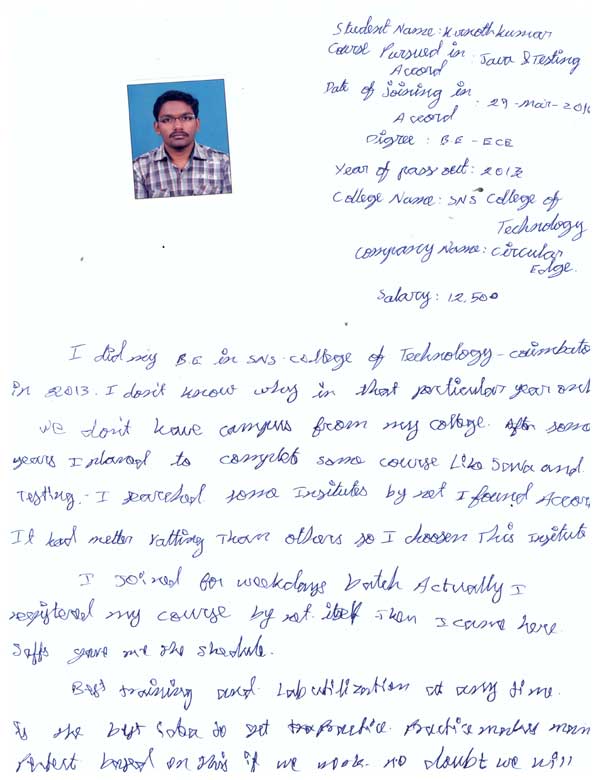 Student Name: Kvnothkumar
Course Pursued in : Java & Testing
Accord
Date of Joining in : 29-Mar-201
Accord
Digree : B.E - ECE
Year of pass out: 2013
College Name: SNS College of
Technology
Company Name: Circular
Edge.
Salary: 12,500
I did my B.E in SNS College of Technology - coimbato
in 2013. I don't know why in that particular year onl
we don't have campus from my college. After some
years I planed to complet some course Like Java and
Testing. I searched some Insitutes by net I found Accor
It had metter ratting Than others so I choosen This Insitute
I Joined for weekdays batch Actually I
registered my course by net. itself Then I came here.
Saffs gave me the shedule.
Best training and Lab utilization at any time.
Is the best to get Practice. Practice makes man
Perfect based on this if we work no doubt we will